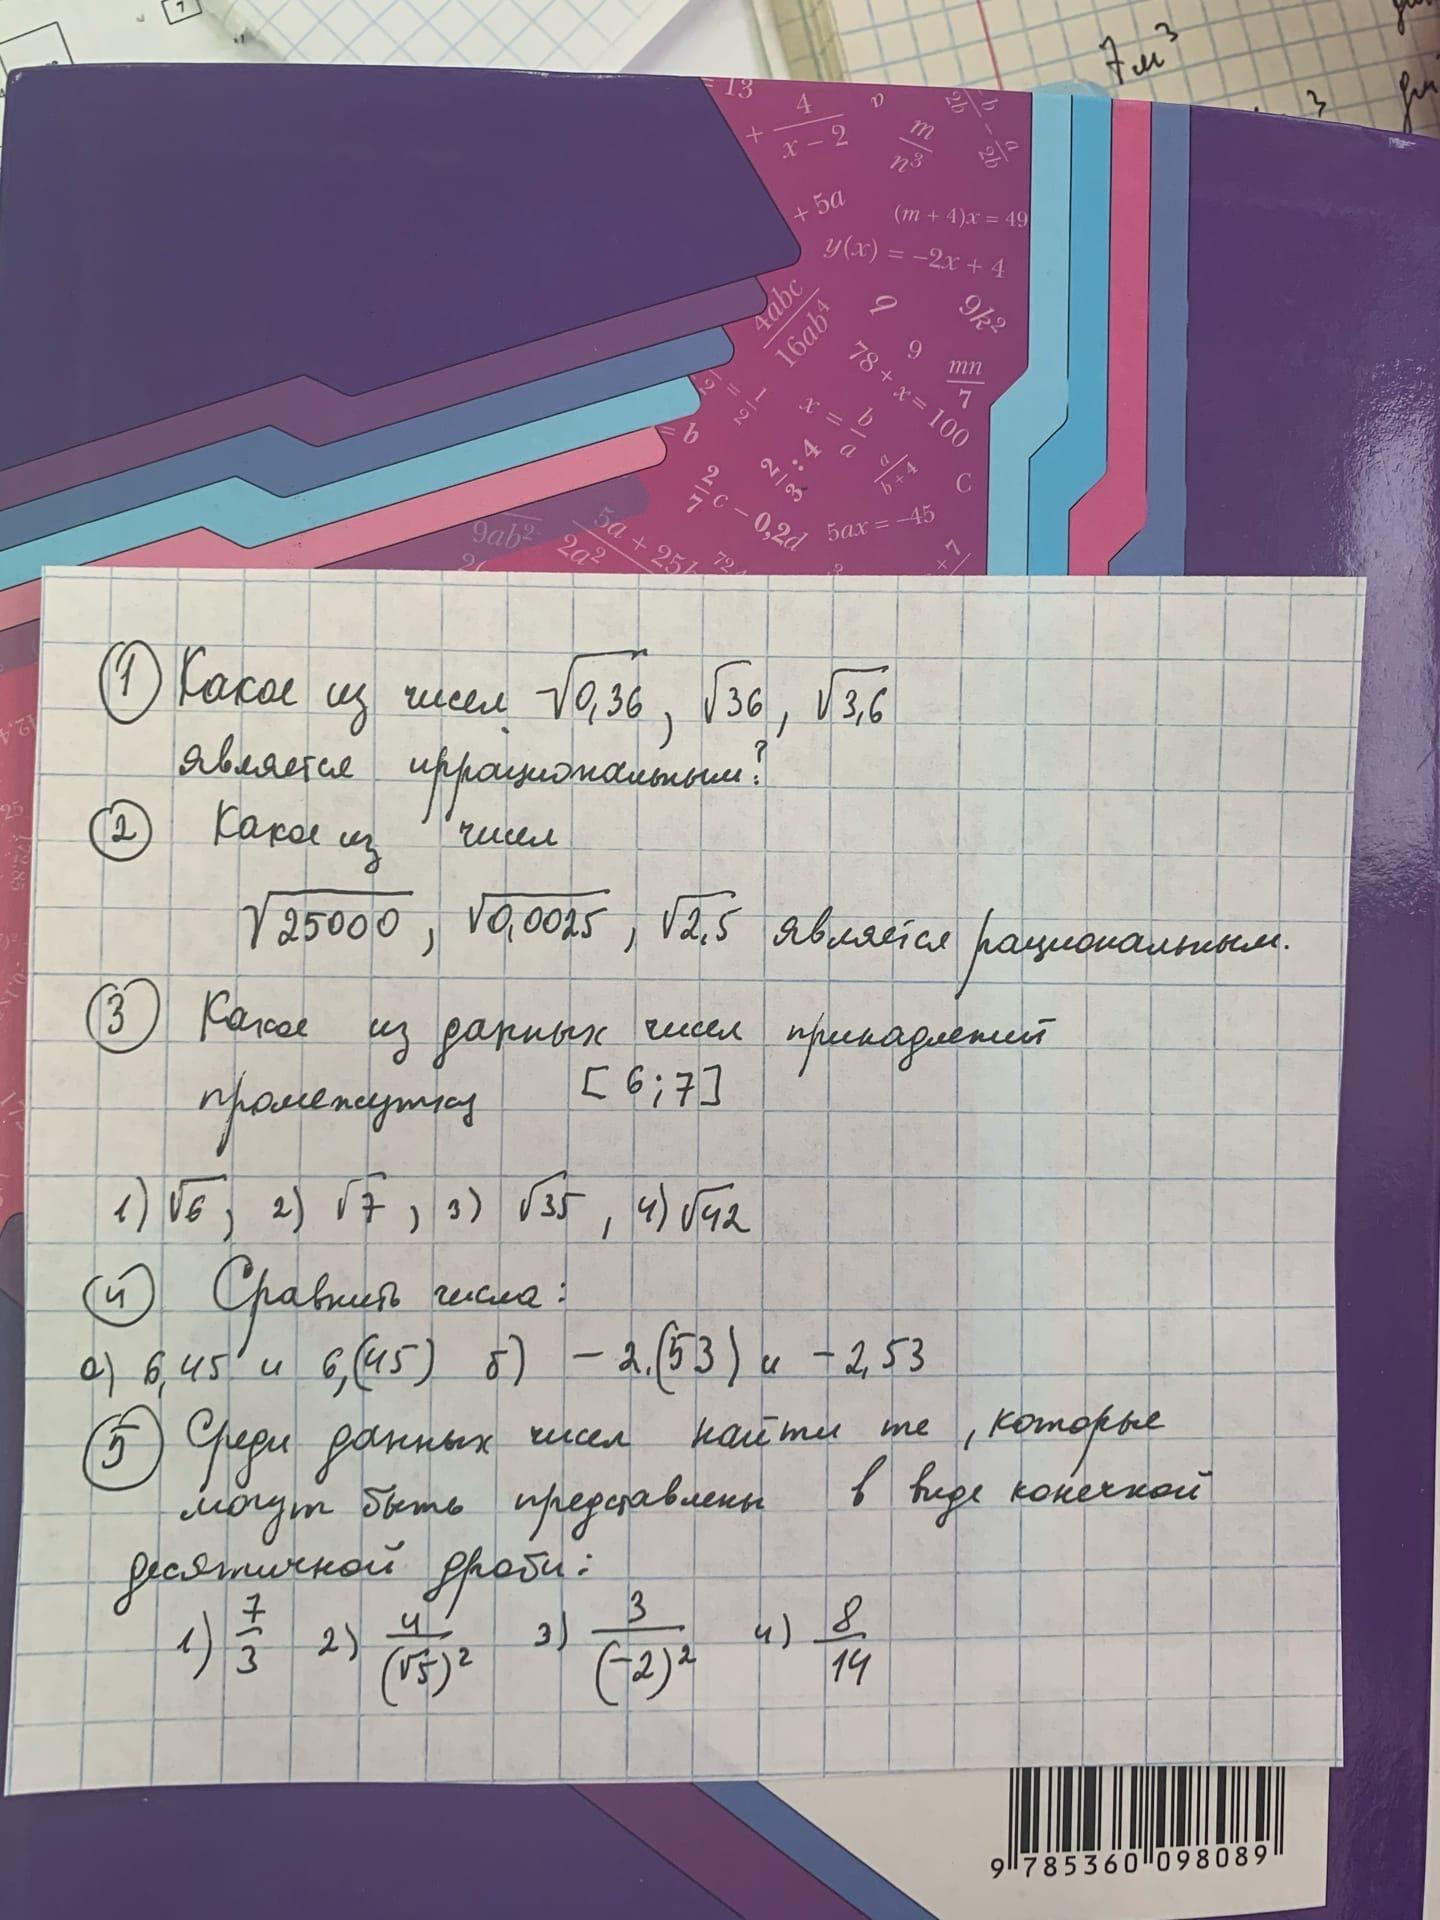 7
7м³
³
= 13
+ 4/(x − 2)
m/n³
+ 5a
(m + 4)x = 49
y(x) = −2x + 4
4abc/16ab⁴
9
9k²
78 + x = 100
9
mn/7
x = b/a
= b
2/3 : 4
a/(b+4)
C
c − 0,2d
5ax = −45
9ab²
5a + 25b
2a²
① Какое из чисел √0,36, √36, √3,6
является иррациональным?
② Какое из чисел
√25000, √0,0025, √2,5 является рациональным.
③ Какое из данных чисел принадлежит
промежутку [6;7]
1) √6, 2) √7, 3) √35, 4) √42
④ Сравнить числа:
а) 6,45 и 6,(45) б) −2,(53) и −2,53
⑤ Среди данных чисел найти те, которые
могут быть представлены в виде конечной
десятичной дроби:
1) 7/3 2) 4/(√5)² 3) 3/(−2)² 4) 8/14
9 785360 098089